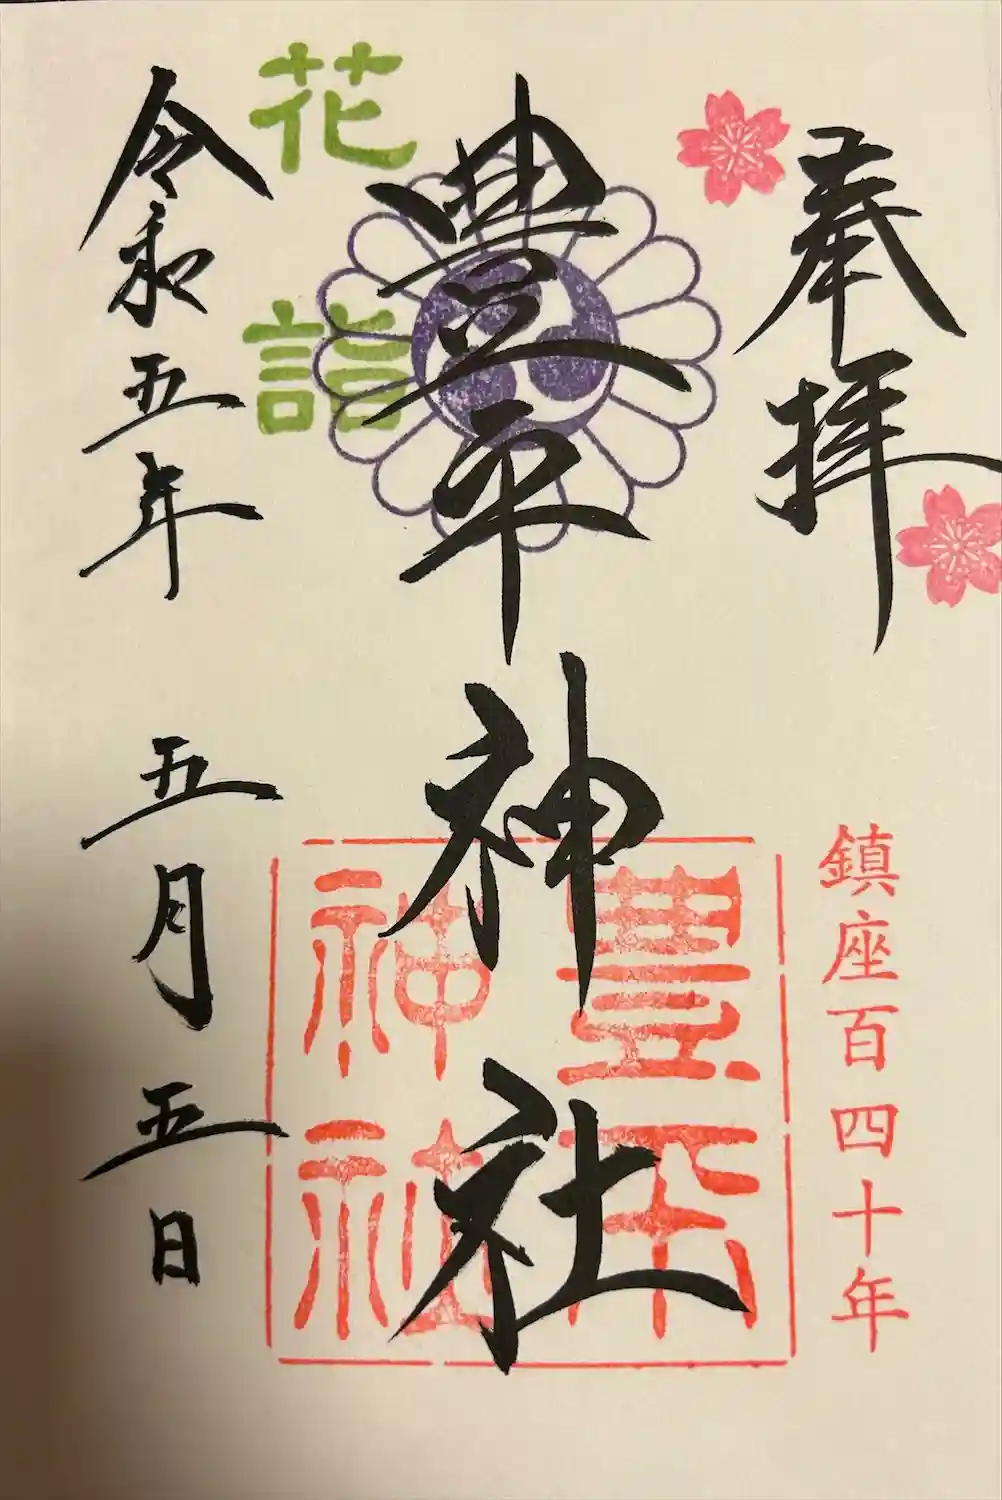 奉拝
鎮座百四十年
豊平神社
豊平
神社
花詣
令和五年 五月五日